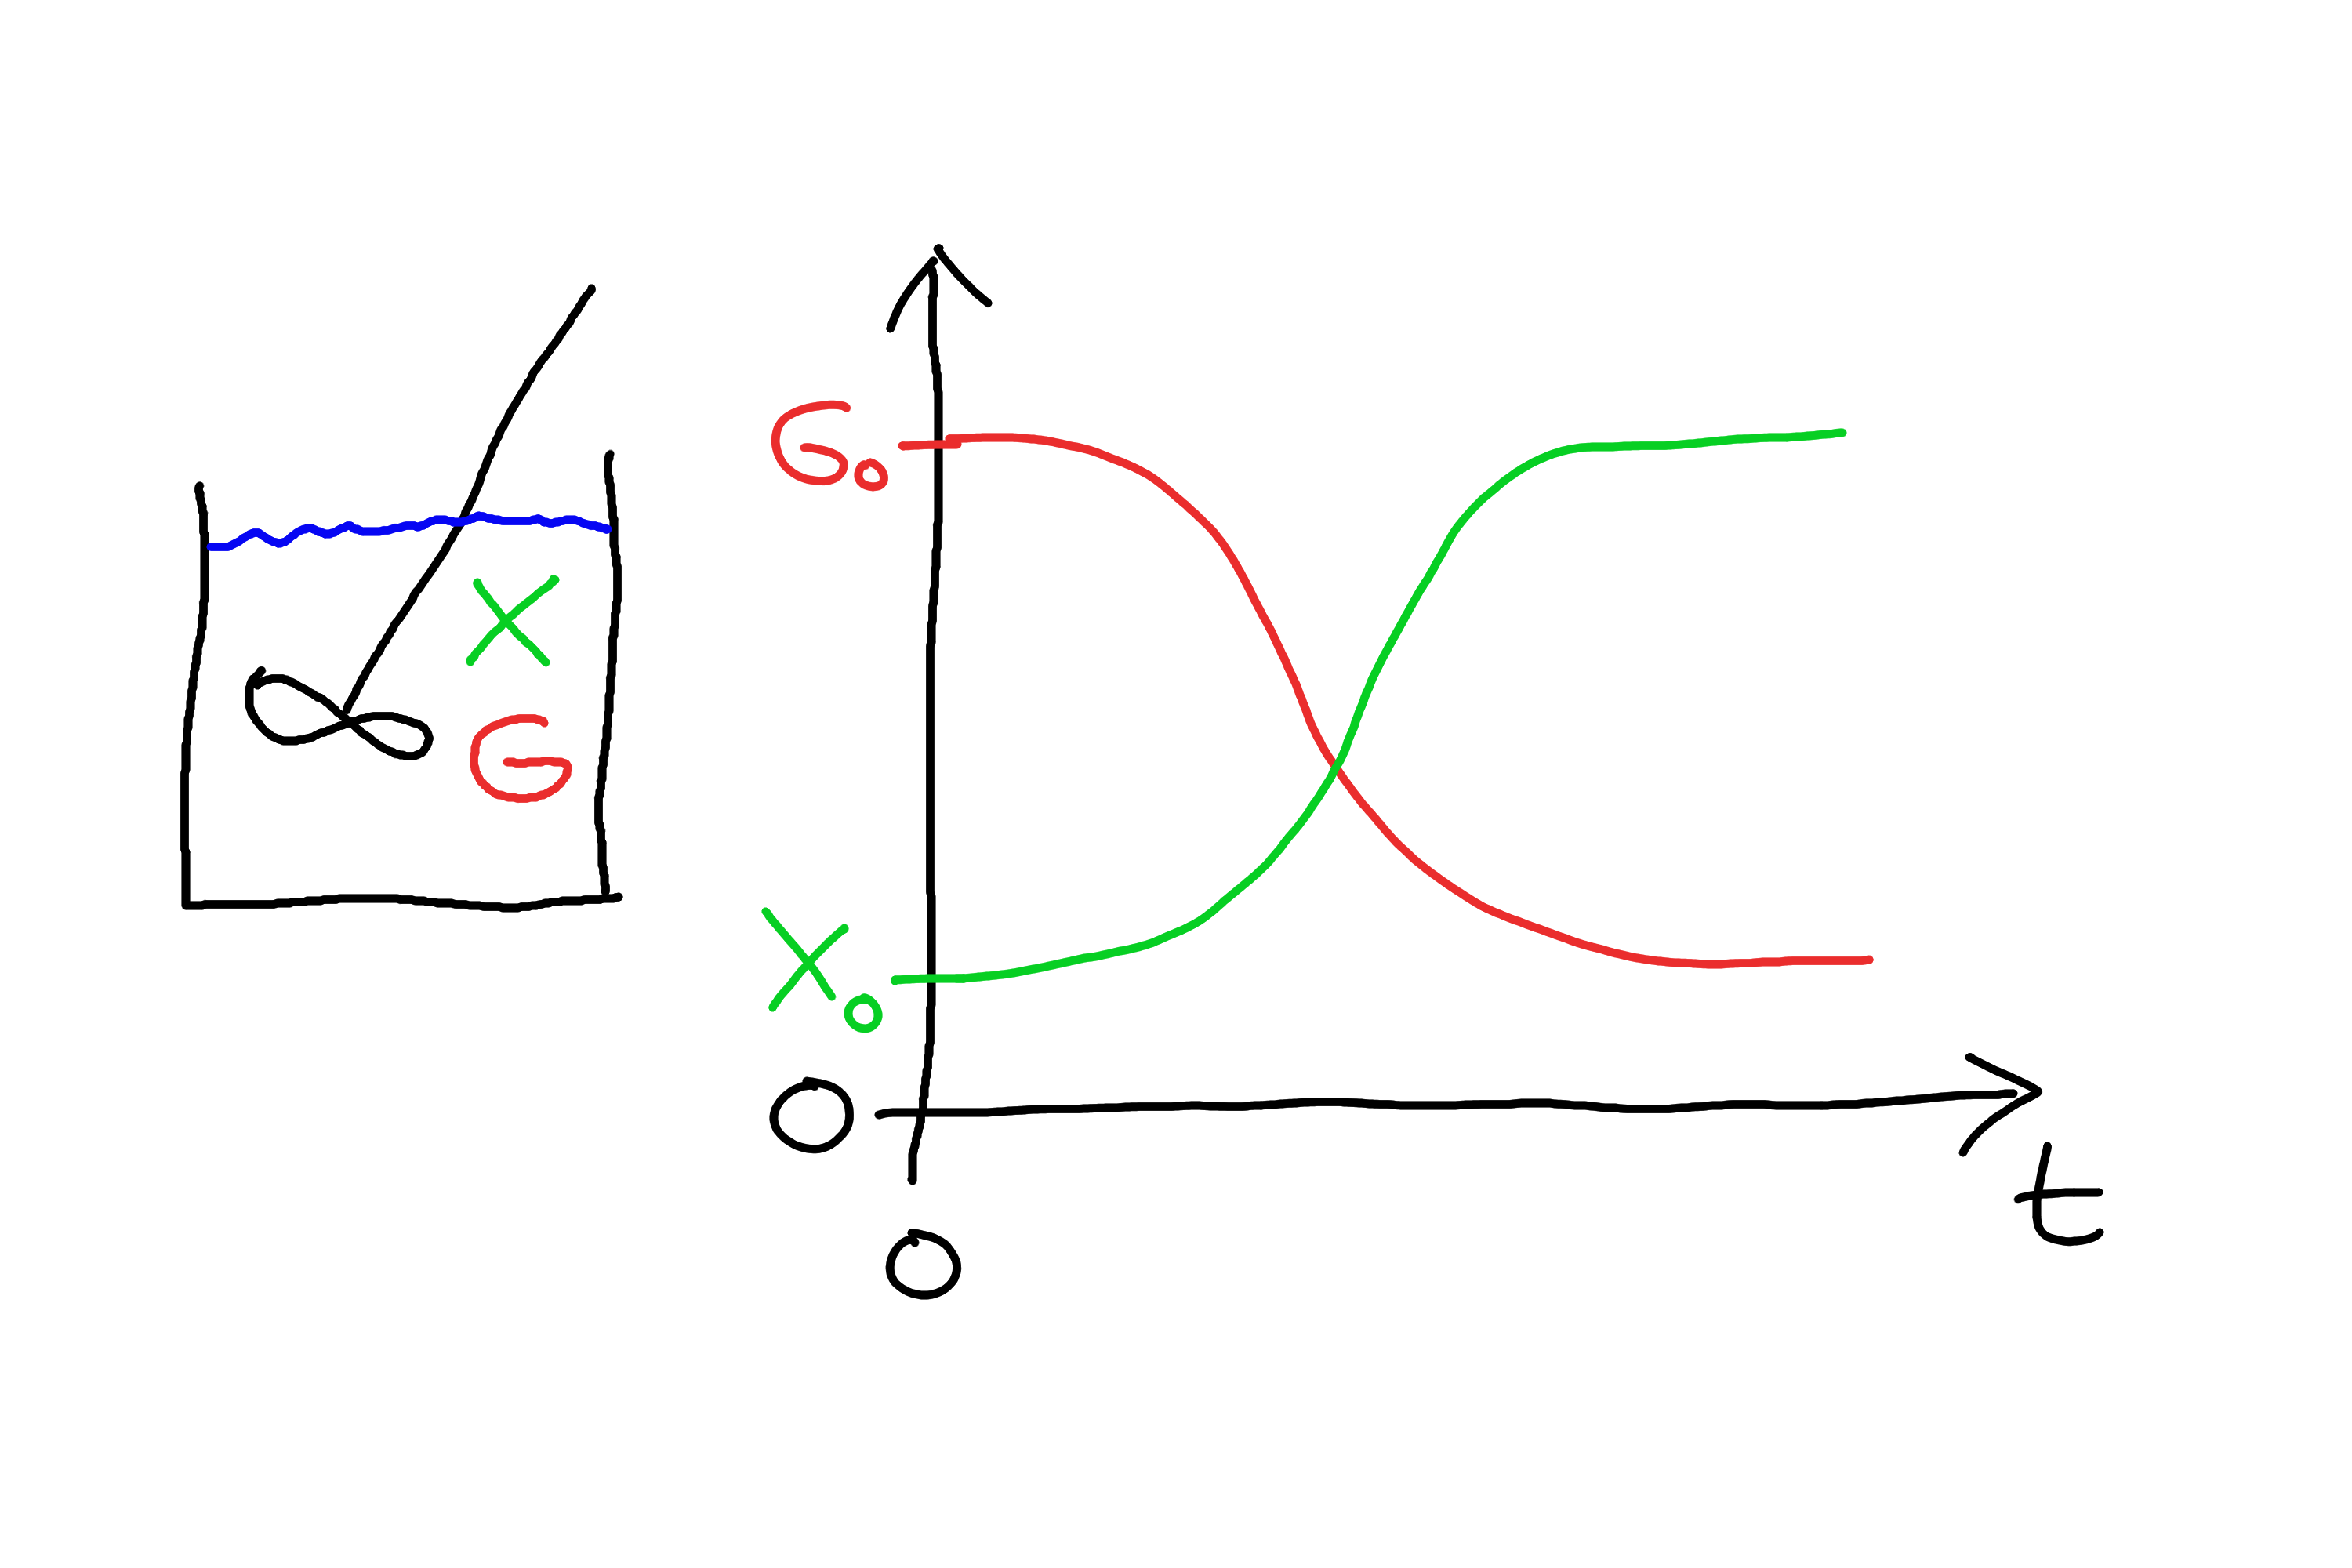 X
G
G₀
X₀
0
0
t